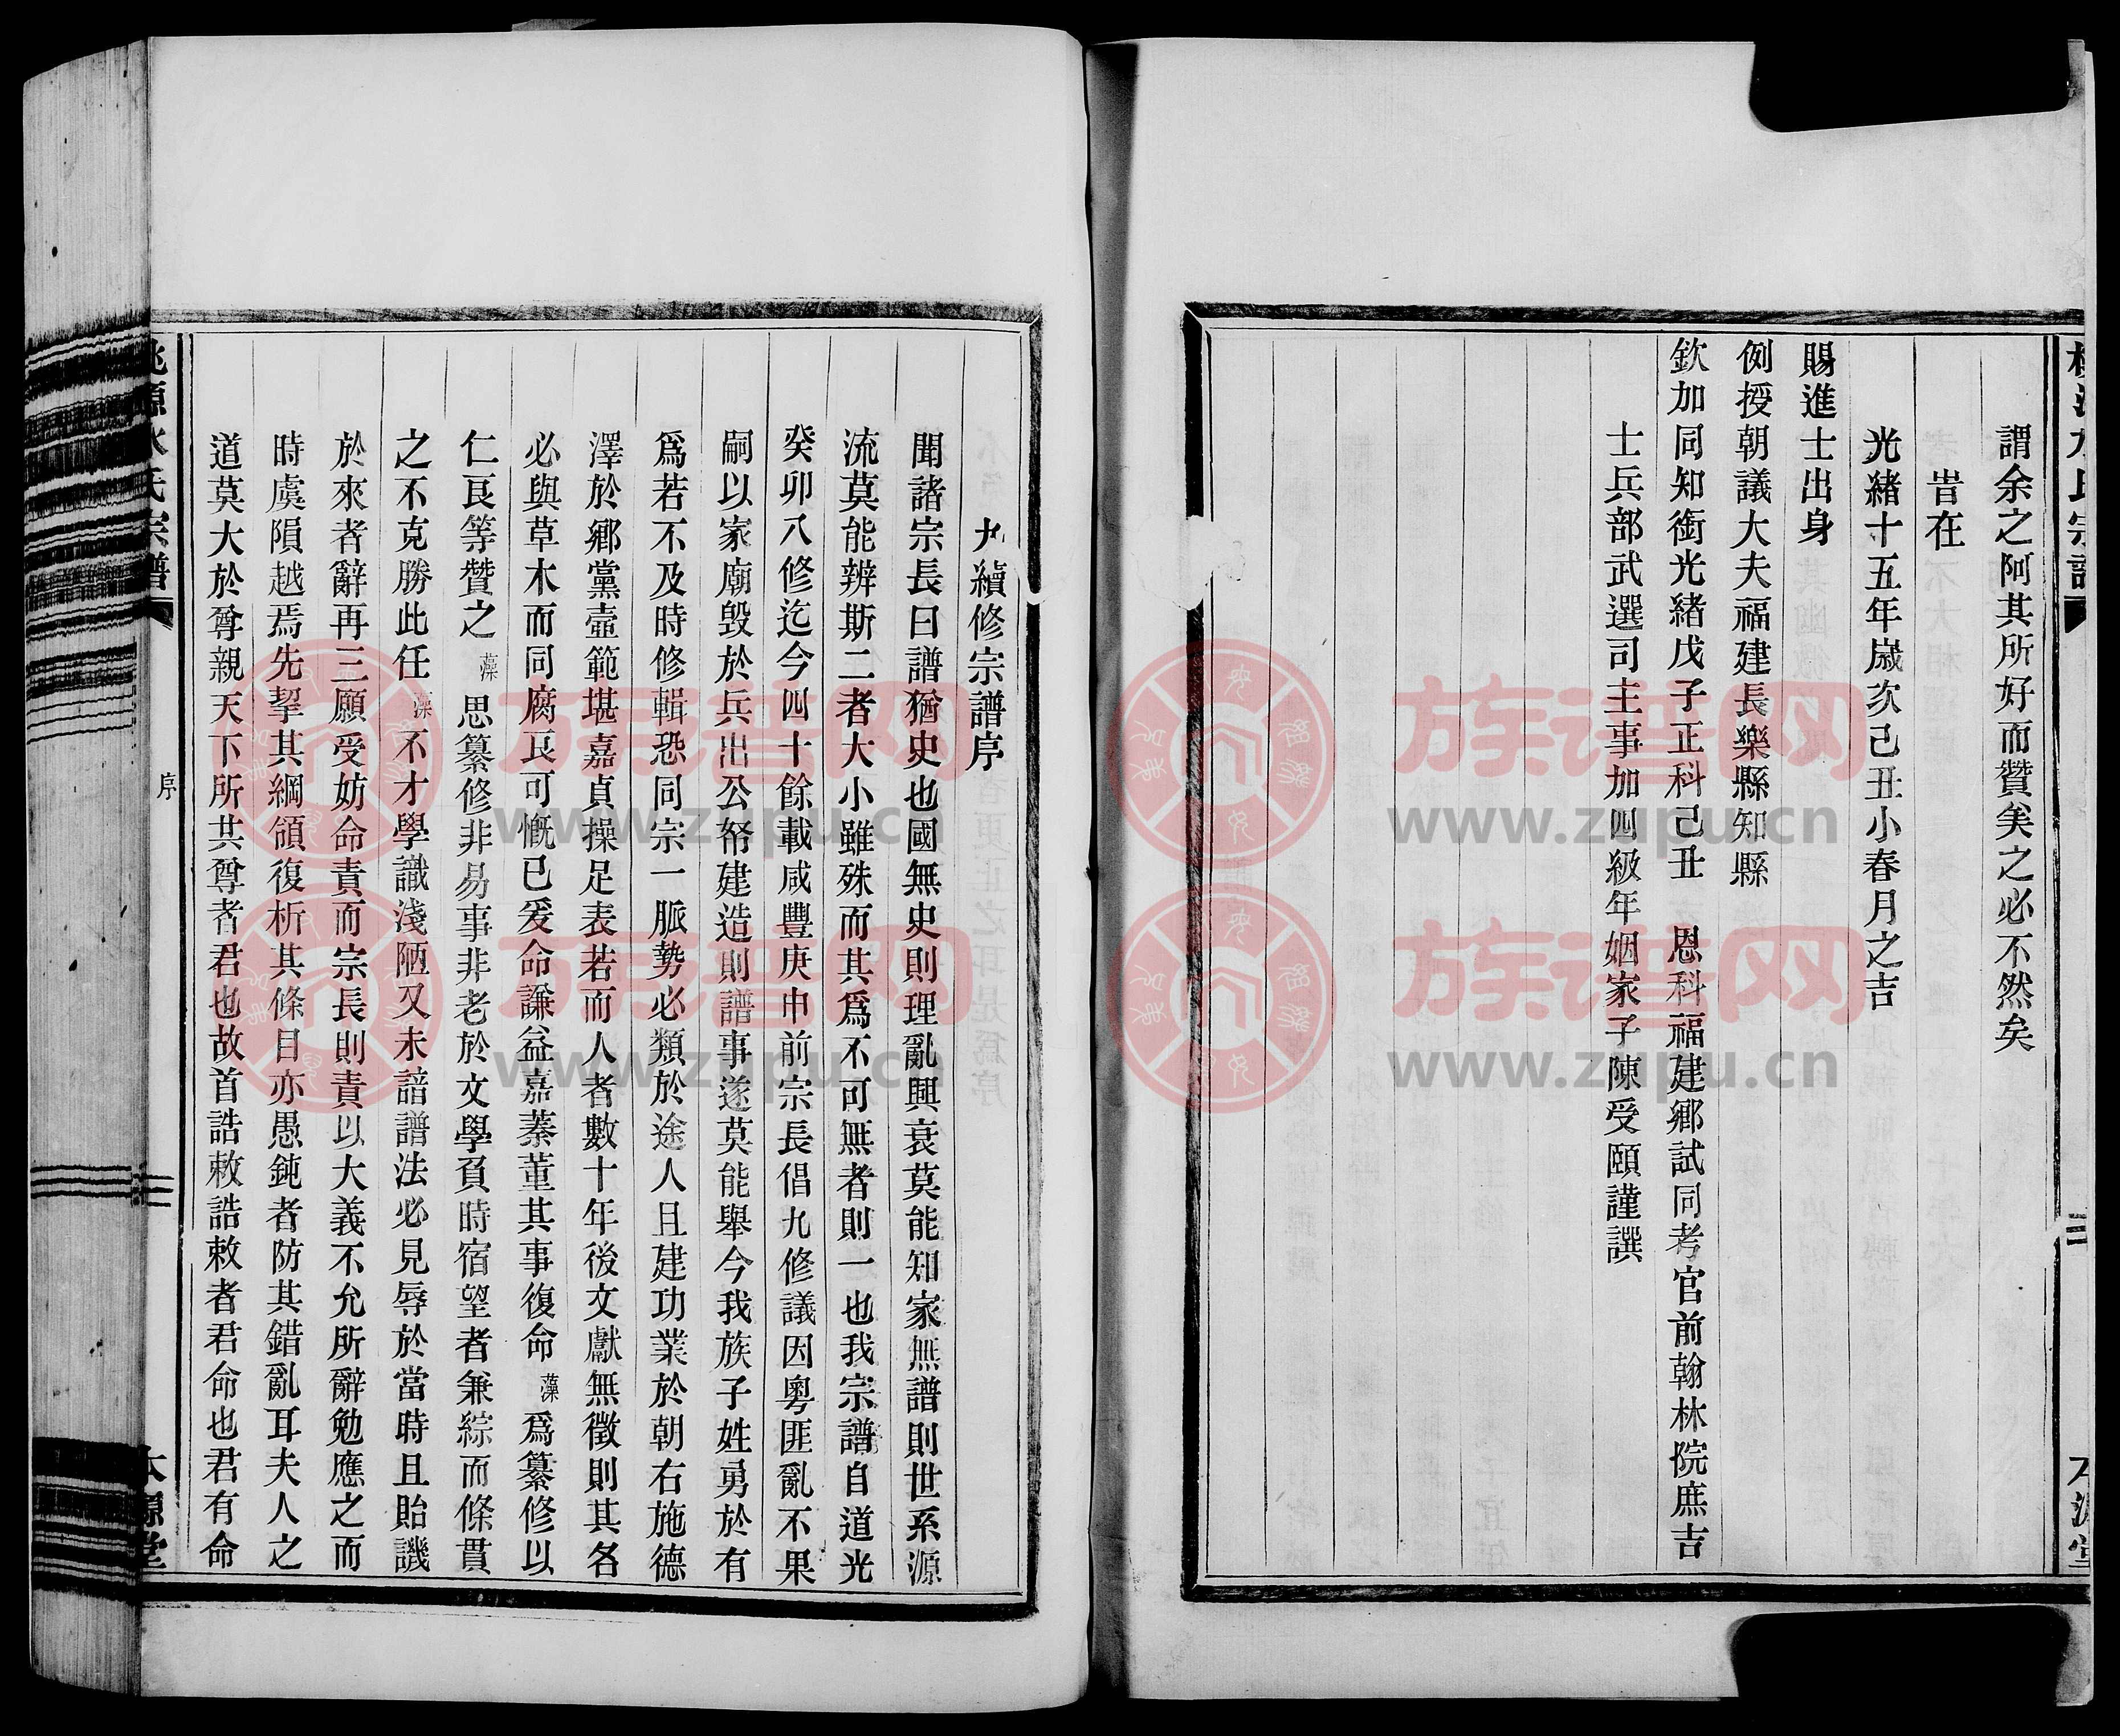 謂余之阿其所好而贊矣之必不然矣
旹在
光緒十五年歲次己丑小春月之吉
賜進士出身
例授朝議大夫福建長樂縣知縣
欽加同知銜光緒戊子正科己丑 恩科福建鄉試同考官前翰林院庶吉
士兵部武選司主事加四級年姻家子陳受頤謹譔
九續修宗譜序
聞諸宗長曰譜猶史也國無史則理亂興衰莫能知家無譜則世系源
流莫能辨斯二者大小雖殊而其爲不可無者則一也我宗譜自道光
癸卯八修迄今四十餘載咸豐庚申前宗長倡九修議因粵匪亂不果
嗣以家廟毀於兵出公帑建造則譜事遂莫能舉今我族子姓勇於有
爲若不及時修輯恐同宗一脈勢必類於途人且建功業於朝右施德
澤於鄉黨壼範堪嘉貞操足表若而人者數十年後文獻無徵則其各
必與草木而同腐良可慨已爰命謙益嘉蓁董其事復命藻爲纂修以
仁良等贊之藻思纂修非易事非老於文學負時宿望者兼綜而條貫
之不克勝此任藻不才學識淺陋又未諳譜法必見辱於當時且貽譏
於來者辭再三願受妨命責而宗長則責以大義不允所辭勉應之而
時虞隕越焉先挈其綱領復析其條目亦愚鈍者防其錯亂耳夫人之
道莫大於尊親天下所共尊者君也故首誥敕誥敕者君命也君有命
桃源水氏宗譜
序
本源堂
族谱网
www.zupu.cn
族谱网
www.zupu.cn
族谱网
www.zupu.cn
族谱网
www.zupu.cn